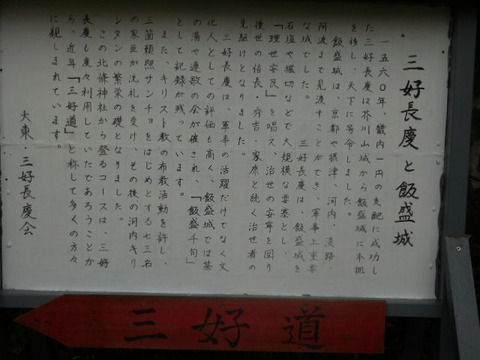 三好長慶と飯盛城
一五六〇年、畿内一円の支配に成功し
た三好長慶は芥川山城から飯盛城に本拠
を移し、天下に号令しました。
飯盛城は、京都や摂津、河内、淡路、
阿波まで見渡すことができ、軍事上重要
な城でした。 三好長慶は、飯盛城を
石垣や堀切などで大規模な要塞とし、
「理世安民」を唱え、治世の安寧を図り
後世の信長・秀吉・家康と続く治世者の
先駆けとなりました。
三好長慶は、軍事の活躍だけでなく文
化人としての評価も高く、飯盛城では茶
の湯や連歌の会が催され、「飯盛千句」
として記録が残っています。
また、キリスト教の布教活動を許し、
三箇頼照サンチョをはじめとする七三名
の家臣が洗礼を受け、その後の河内キリ
シタンの繁栄の礎となりました。
この北條神社から登るコースは、三好
長慶も度々利用していたであろうことか
ら、近年「三好道」と称して多くの方々
に親しまれています。
大東・三好長慶会
三好道